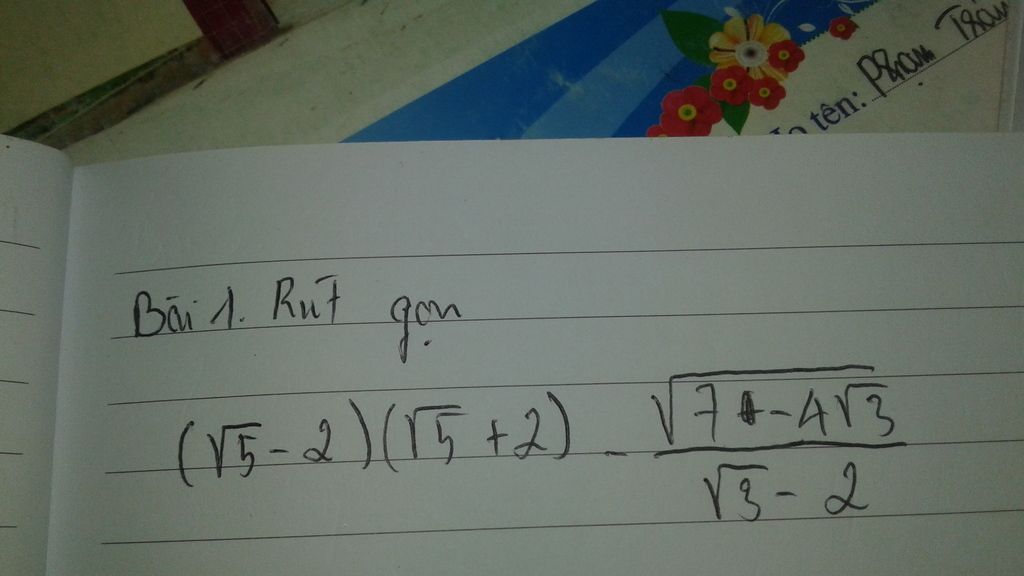 ọ tên: Phạm Trần
Bài 1. Rút gọn
(√5 - 2)(√5 + 2) - √(7 - 4√3) / (√3 - 2)